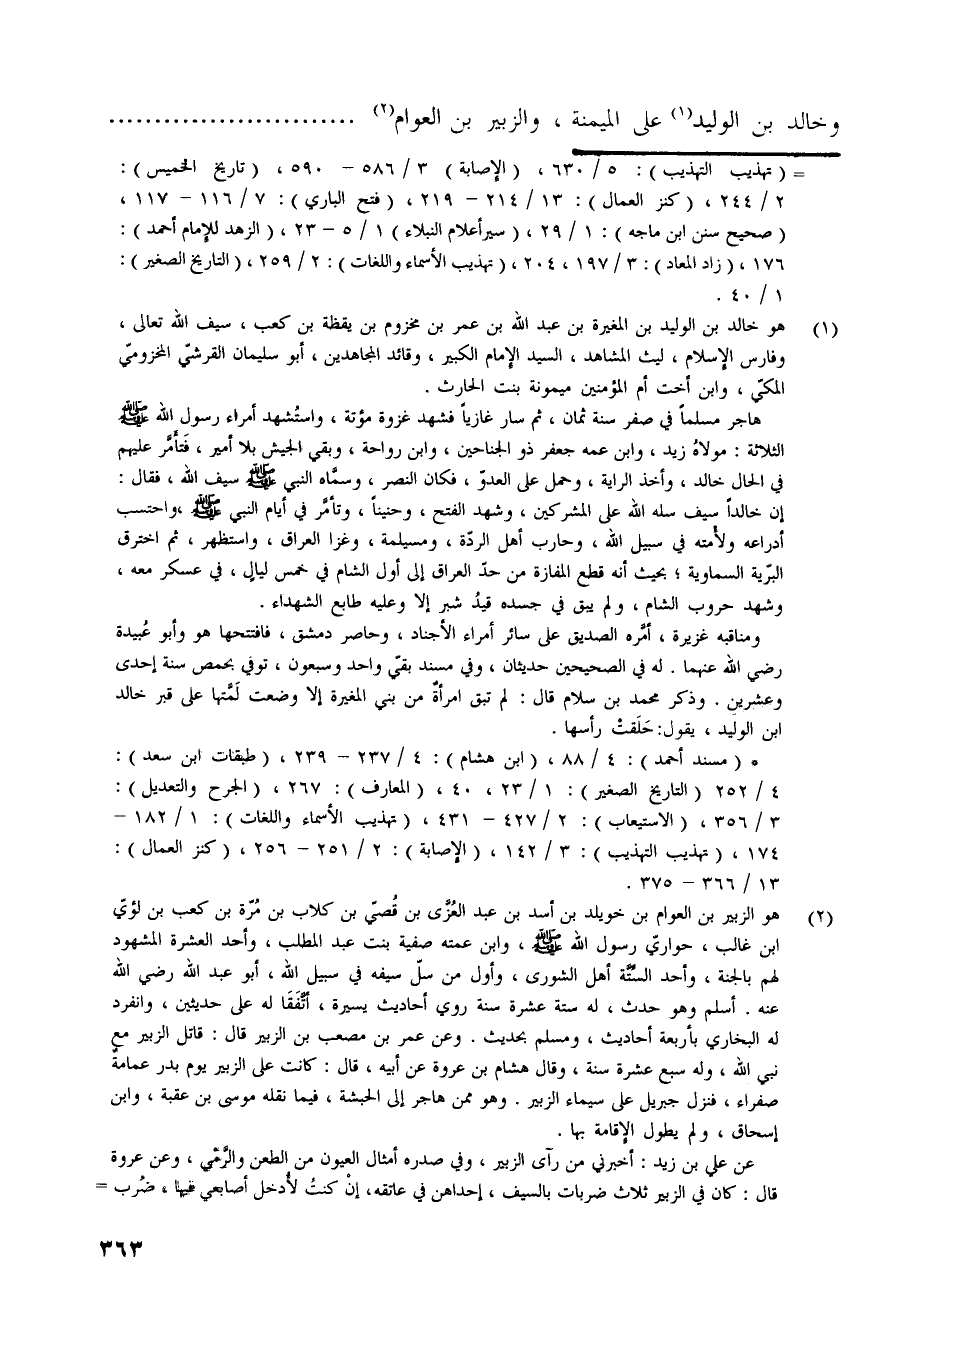 وخالد بن الوليد(١) على الميمنة ، والزبير بن العوام(٢) ...........................
= ( تهذيب التهذيب ) : ٥ / ٦٣٠ ، ( الإصابة ) ٣ / ٥٨٦ – ٥٩٠ ، ( تاريخ الخميس ) :
٢ / ٢٤٤ ، ( كنز العمال ) : ١٣ / ٢١٤ – ٢١٩ ، ( فتح الباري ) : ٧ / ١١٦ – ١١٧ ،
( صحيح سنن ابن ماجه ) : ١ / ٢٩ ، ( سير أعلام النبلاء ) ١ / ٥ – ٢٣ ، ( الزهد للإمام أحمد ) :
١٧٦ ، ( زاد المعاد ) : ٣ / ١٩٧ ، ٢٠٤ ، ( تهذيب الأسماء واللغات ) : ٢ / ٢٥٩ ، ( التاريخ الصغير ) :
١ / ٤٠ .
(١) هو خالد بن الوليد بن المغيرة بن عبد الله بن عمر بن مخزوم بن يقظة بن كعب ، سيف الله تعالى ،
وفارس الإسلام ، ليث المشاهد ، السيد الإمام الكبير ، وقائد المجاهدين ، أبو سليمان القرشيّ المخزوميّ
المكيّ ، وابن أخت أم المؤمنين ميمونة بنت الحارث .
هاجر مسلماً في صفر سنة ثمان ، ثم سار غازياً فشهد غزوة مؤتة ، واستُشهد أمراء رسول الله ﷺ
الثلاثة : مولاهُ زيد ، وابن عمه جعفر ذو الجناحين ، وابن رواحة ، وبقي الجيش بلا أمير ، فَتأَمَّر عليهم
في الحال خالد ، وأخذ الراية ، وحمل على العدوّ ، فكان النصر ، وسمَّاه النبي ﷺ سيف الله ، فقال :
إن خالداً سيف سله الله على المشركين ، وشهد الفتح ، وحنيناً ، وتأمَّر في أيام النبي ﷺ ،واحتسب
أدراعه ولأمته في سبيل الله ، وحارب أهل الردّة ، ومسيلمة ، وغزا العراق ، واستظهر ، ثم اخترق
البرّية السماوية ؛ بحيث أنه قطع المفازة من حدّ العراق إلى أول الشام في خمس ليالٍ ، في عسكر معه ،
وشهد حروب الشام ، ولم يبق في جسده قيدُ شبر إلا وعليه طابع الشهداء .
ومناقبه غزيرة ، أمَّره الصديق على سائر أمراء الأجناد ، وحاصر دمشق ، فافتتحها هو وأبو عُبيدة
رضي الله عنهما . له في الصحيحين حديثان ، وفي مسند بقيّ واحد وسبعون ، توفي بحمص سنة إحدى
وعشرين . وذكر محمد بن سلام قال : لم تبق امرأةٌ من بني المغيرة إلا وضعت لَمَّتها على قبر خالد
ابن الوليد ، يقول: حَلَقتْ رأسها .
* ( مسند أحمد ) : ٤ / ٨٨ ، ( ابن هشام ) : ٤ / ٢٣٧ – ٢٣٩ ، ( طبقات ابن سعد ) :
٤ / ٢٥٢ ( التاريخ الصغير ) : ١ / ٢٣ ، ٤٠ ، ( المعارف ) : ٢٦٧ ، ( الجرح والتعديل ) :
٣ / ٣٥٦ ، ( الاستيعاب ) : ٢ / ٤٢٧ – ٤٣١ ، ( تهذيب الأسماء واللغات ) : ١ / ١٨٢ –
١٧٤ ، ( تهذيب التهذيب ) : ٣ / ١٤٢ ، ( الإصابة ) : ٢ / ٢٥١ – ٢٥٦ ، ( كنز العمال ) :
١٣ / ٣٦٦ – ٣٧٥ .
(٢) هو الزبير بن العوام بن خويلد بن أسد بن عبد العُزَّى بن قُصيّ بن كلاب بن مُرّة بن كعب بن لؤيّ
ابن غالب ، حواريّ رسول الله ﷺ ، وابن عمته صفية بنت عبد المطلب ، وأحد العشرة المشهود
لهم بالجنة ، وأحد السِّتَّة أهل الشورى ، وأول من سلّ سيفه في سبيل الله ، أبو عبد الله رضي الله
عنه . أسلم وهو حدث ، له ستة عشرة سنة روي أحاديث يسيرة ، اتَّفَقَا له على حديثين ، وانفرد
له البخاري بأربعة أحاديث ، ومسلم بحديث . وعن عمر بن مصعب بن الزبير قال : قاتل الزبير مع
نبي الله ، وله سبع عشرة سنة ، وقال هشام بن عروة عن أبيه ، قال : كانت على الزبير يوم بدر عمامةٌ
صفراء ، فنزل جبريل على سيماء الزبير . وهو ممن هاجر إلى الحبشة ، فيما نقله موسى بن عقبة ، وابن
إسحاق ، ولم يطول الإقامة بها .
عن علي بن زيد : أخبرني من رآى الزبير ، وفي صدره أمثال العيون من الطعن والرَّمْي ، وعن عروة
قال : كان في الزبير ثلاث ضربات بالسيف ، إحداهن في عاتقه، إنْ كنتُ لأُدخل أصابعي فيها ، ضُرب =
٣٦٣